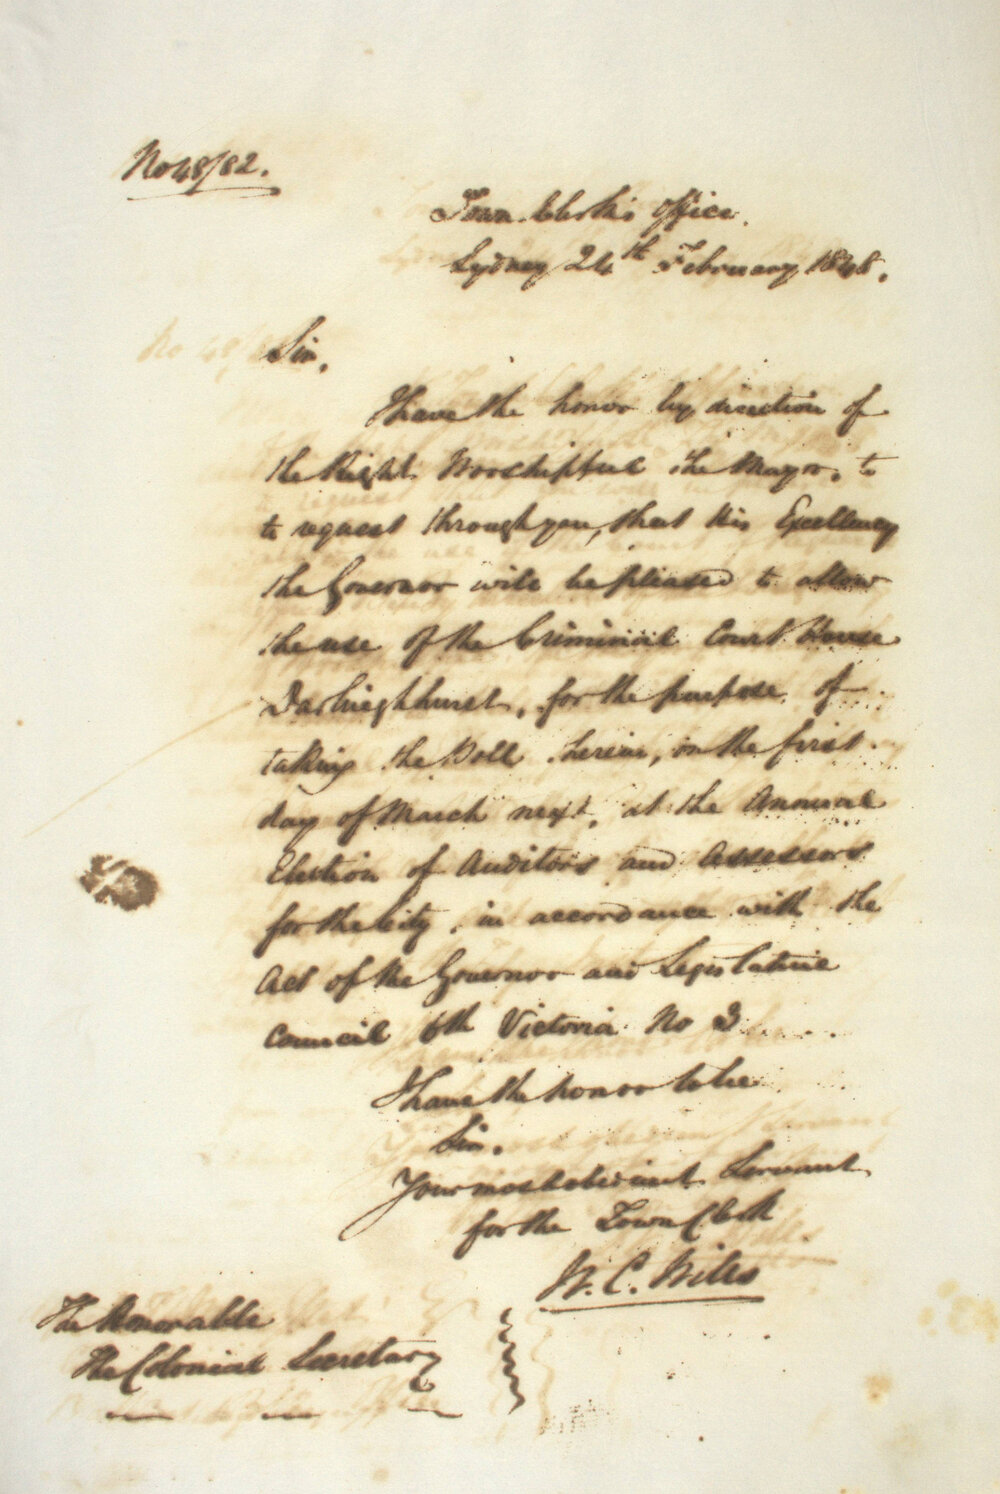 No 48/82.
Town Clerk's Office.
Sydney 24th February 1848.
Sir,
I have the honor by direction of
the Right Worshipful the Mayor, to
to request through you, that His Excellency
the Governor will be pleased to allow
the use of the Criminal Court House
Darlinghhurst, for the purpose of
taking the Poll therein, on the first
day of March next, at the Annual
Election of Auditors and Assessors
for the City, in accordance with the
Act of the Governor and Legislative
Council 6th Victoria No 3
I have the honor to be
Sir.
Your most obedient Servant
for the Town Clerk
W. C. Wills
The Honorable
The Colonial Secretary